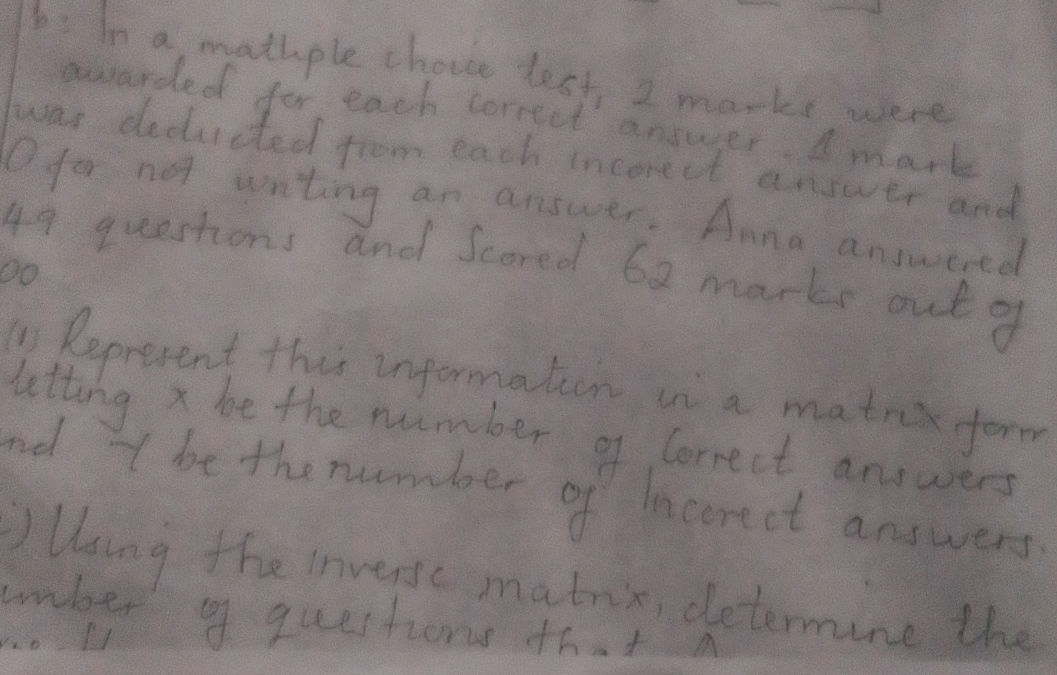 b. In a mathple choice test, 2 marks were
awarded for each correct answer. 1 mark
was deducted from each incorect answer and
0 for not writing an answer. Anna answered
49 questions and Scored 62 marks out of
00
(i) Represent this information in a matrix form
letting x be the number of Correct answers
nd Y be the number of Incorect answers.
i) Using the inverse matrix, determine the
umber of questions that A